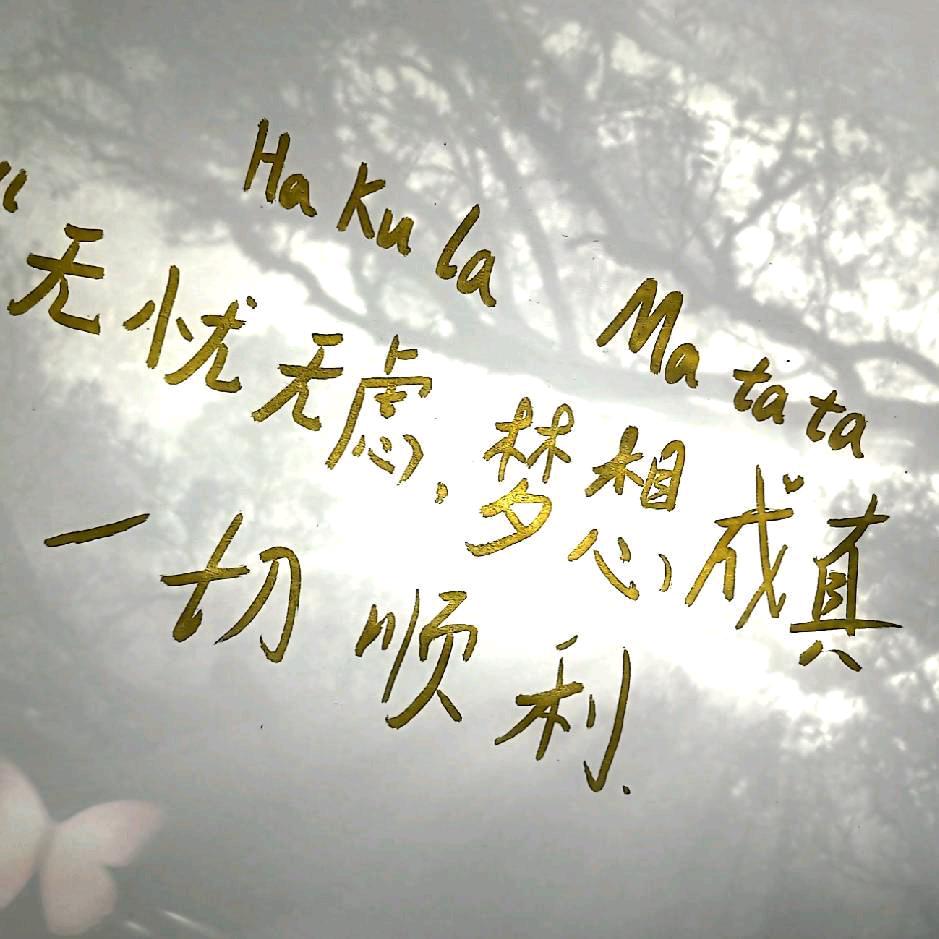 Hakula Matata
“无忧无虑,梦想成真
一切顺利.